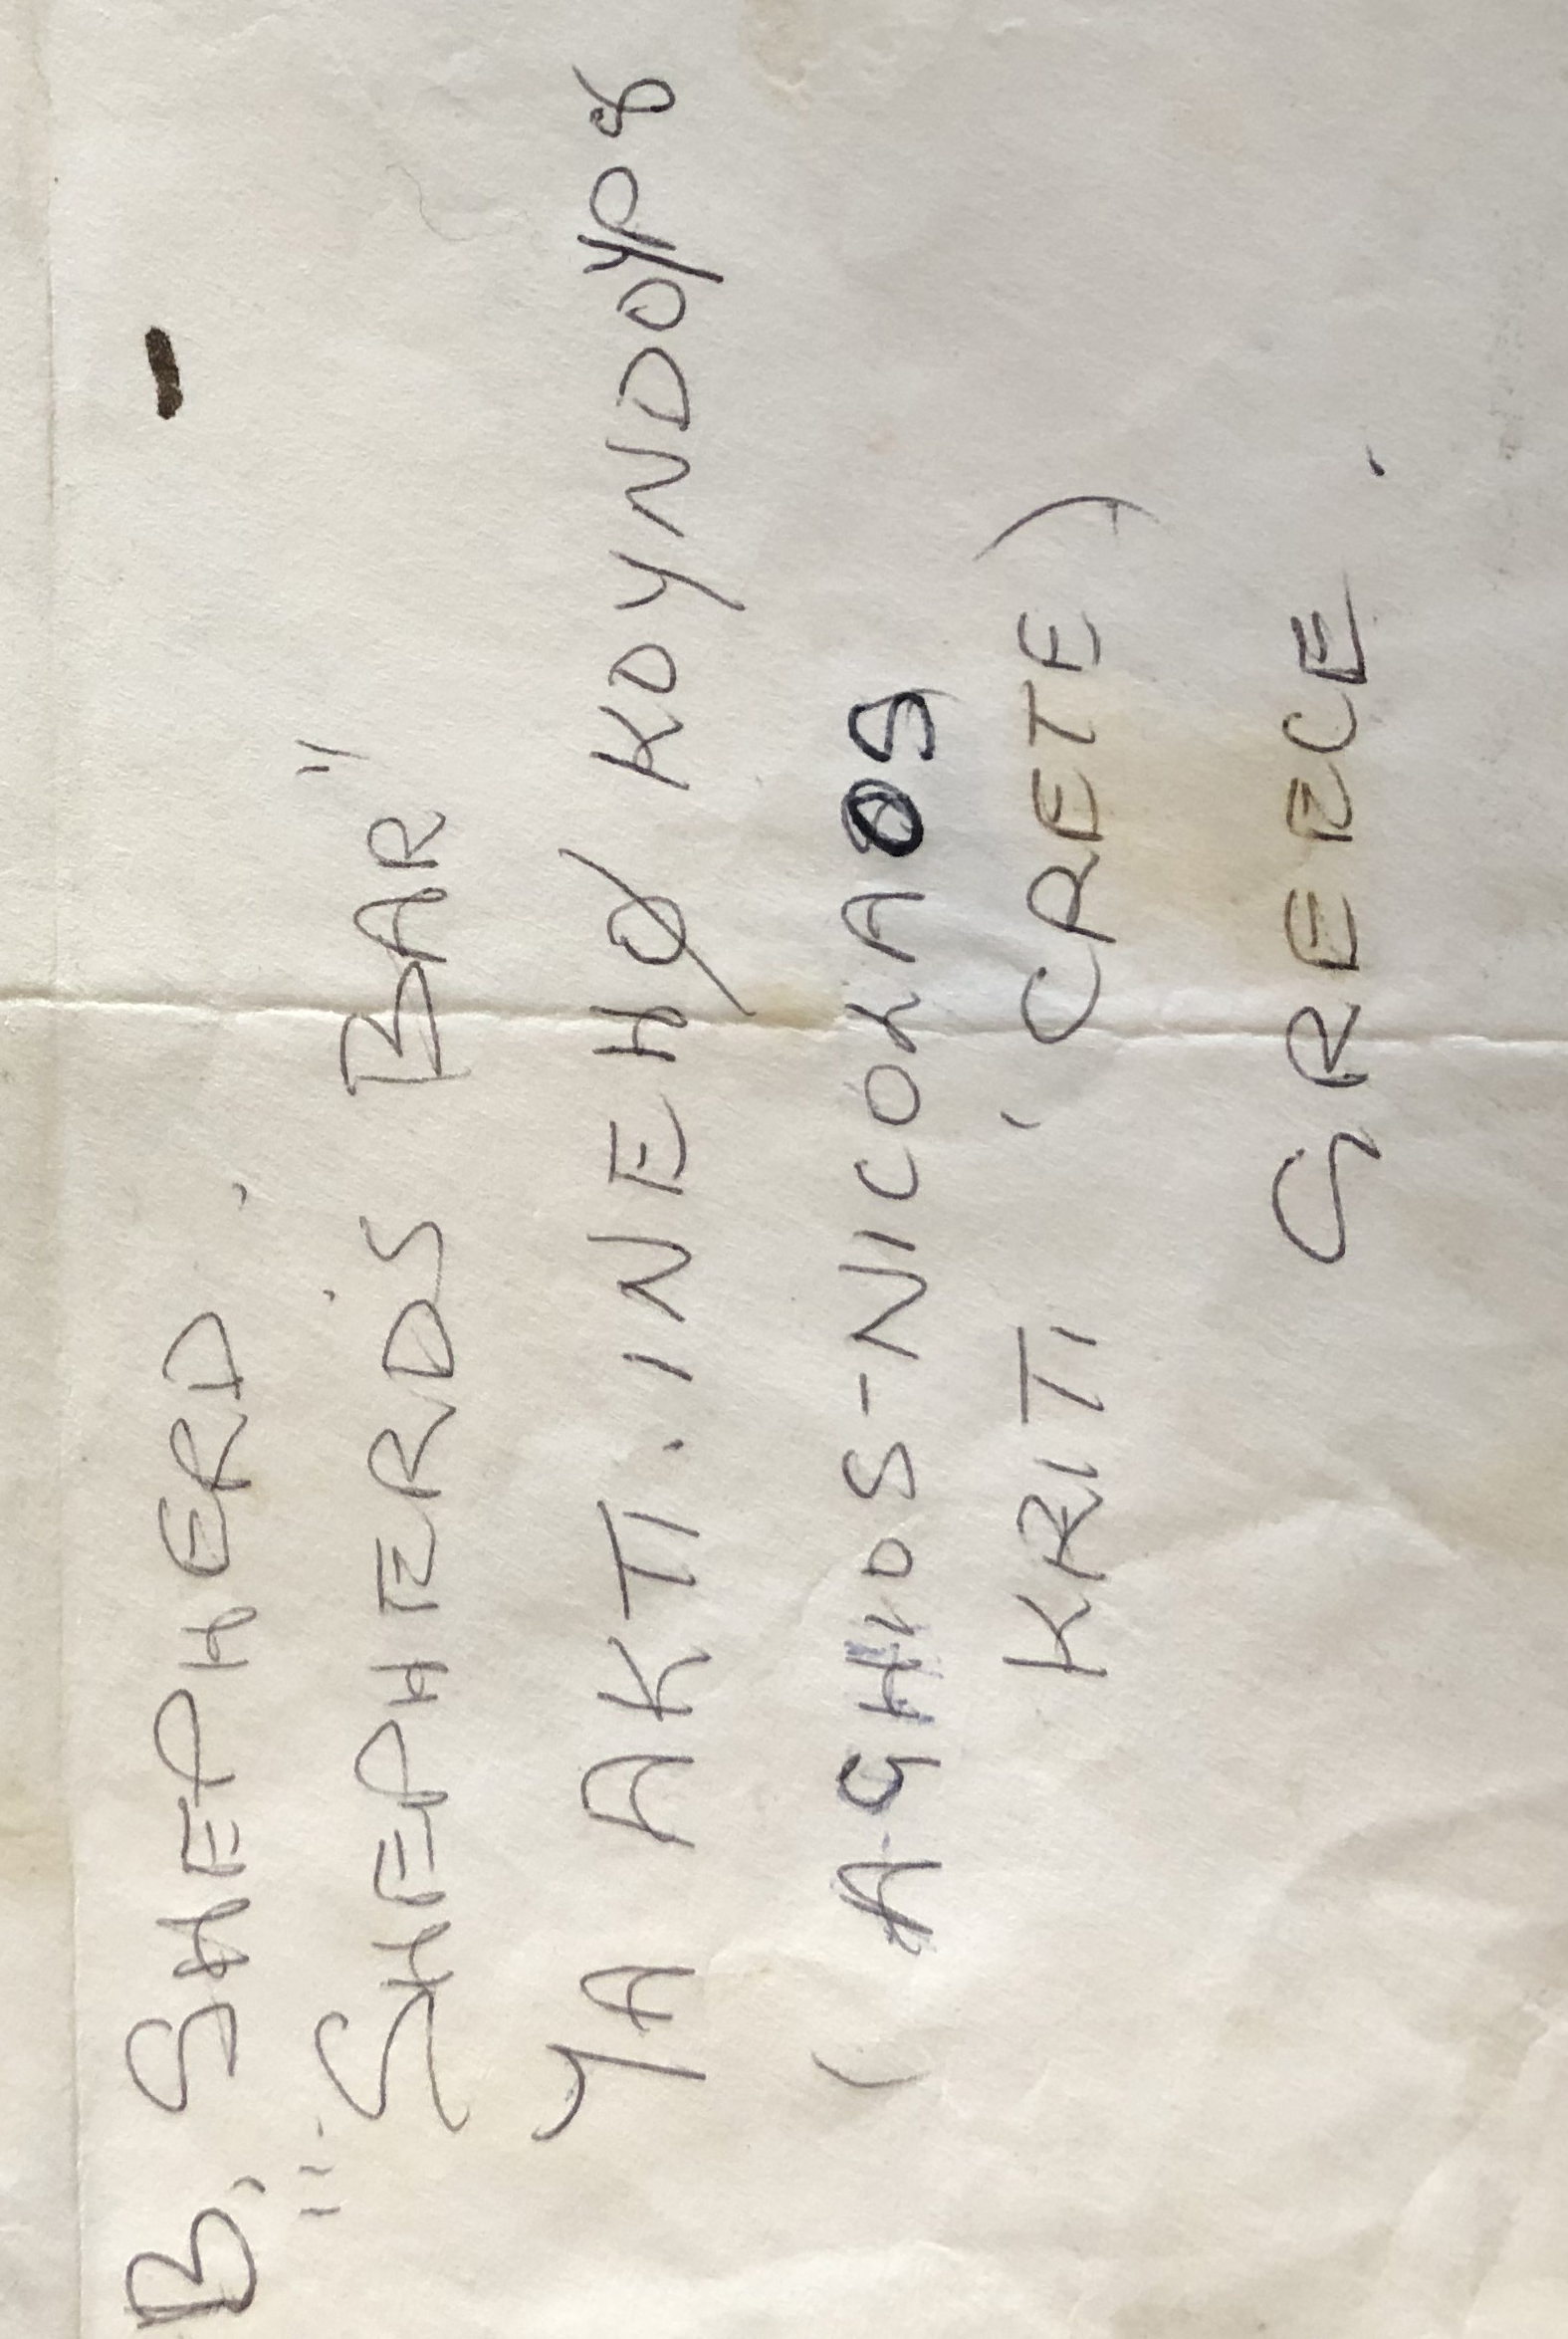 B, SHEPHERD.
"SHEPHERDS BAR"
YA AKTI. INEHØ KOYNDOYP8
(AGHIOS-NICOLAOS
KRITI (CRETE)
GREECE.